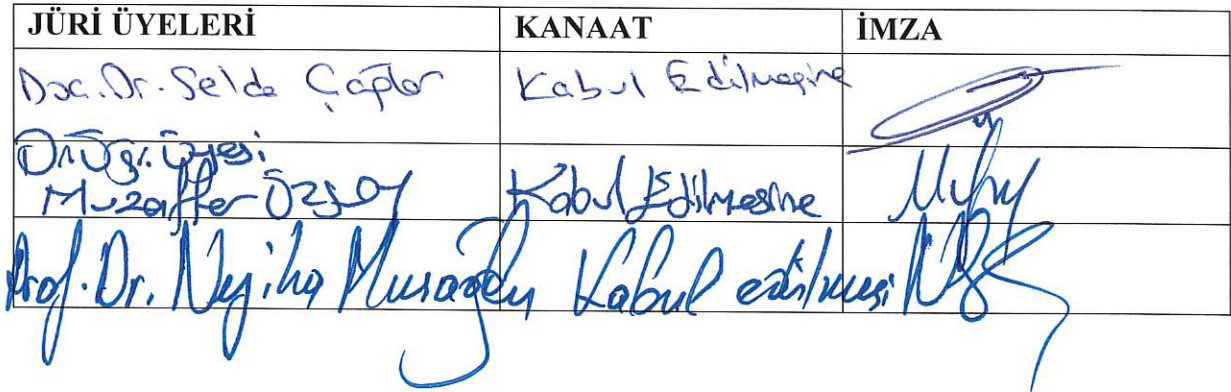 JÜRİ ÜYELERİ KANAAT İMZA
Doç. Dr. Selda Çağlar Kabul Edilmesine
Dr. Öğr. Üyesi
Muzaffer Kabul Edilmesine
Prof. Dr. Kabul edilmesi